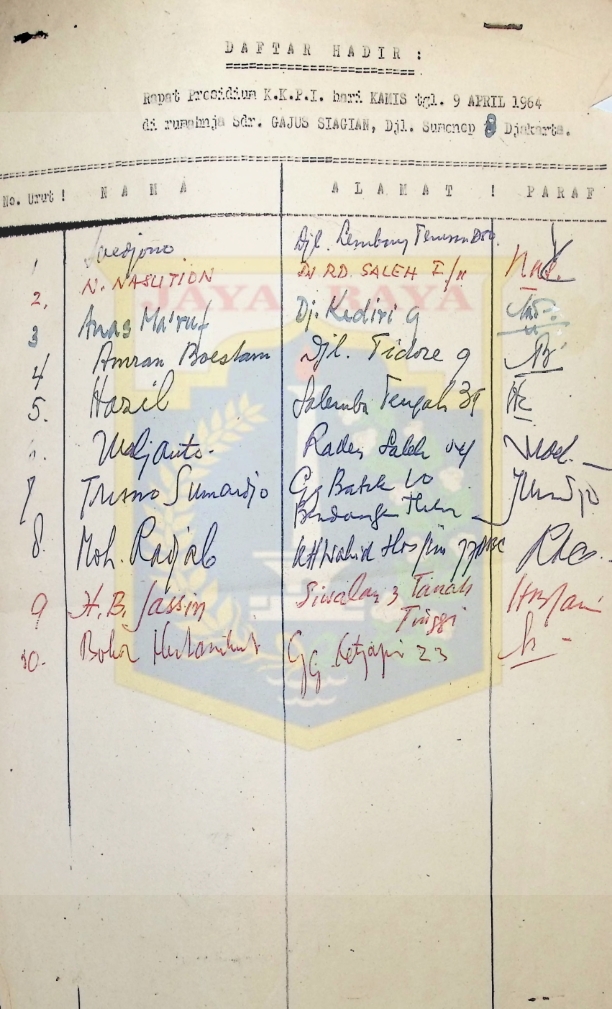 DAFTAR HADIR :
Rapat Presidium K.K.P.I. hari KAMIS tgl. 9 APRIL 1964
di rumahnja Sdr. GAJUS SIAGIAN, Djl. Sumenep 8 Djakarta.
No. Urut ! N A M A A L A M A T ! P A R A F
1 Soedjono Djl. Lembang Terusan
2. N. NASUTION Dj RD. SALEH I/11 Nas.
JAYA RAYA
3 Anas Ma'ruf Dj. Kediri 9
4 Amran Boestam Djl. Tidore 9
5. Hazil Salemba Tengah 39 Hz
Mdjanto. Raden Saleh
7 Trisno Sumardjo Gg Batek 10
Bendungan
8. Moh. Radjab KH Wahid Hasjim
9 H.B. Jassin Siwalan 3 Tanah
Tinggi
10. Gg Ketjapi 23